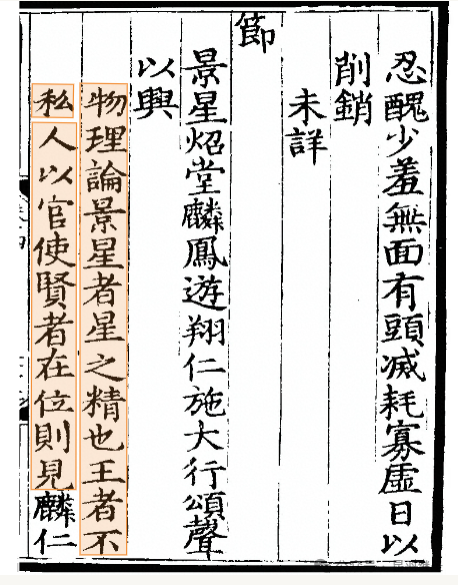 忍醜少羞無面有頭滅耗寡虛日以
削銷
未詳
節
景星炤堂麟鳳遊翔仁施大行頌聲
以興
物理論景星者星之精也王者不
私人以官使賢者在位則見麟仁